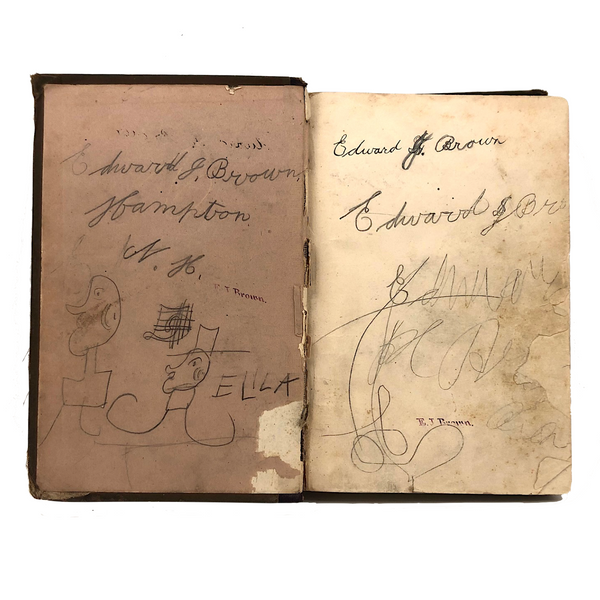 Edward J. Brown,
Hampton
N. H.
E. J. Brown.
ELILA
Edward J. Brown
Edward J Br
E. J. Brown.